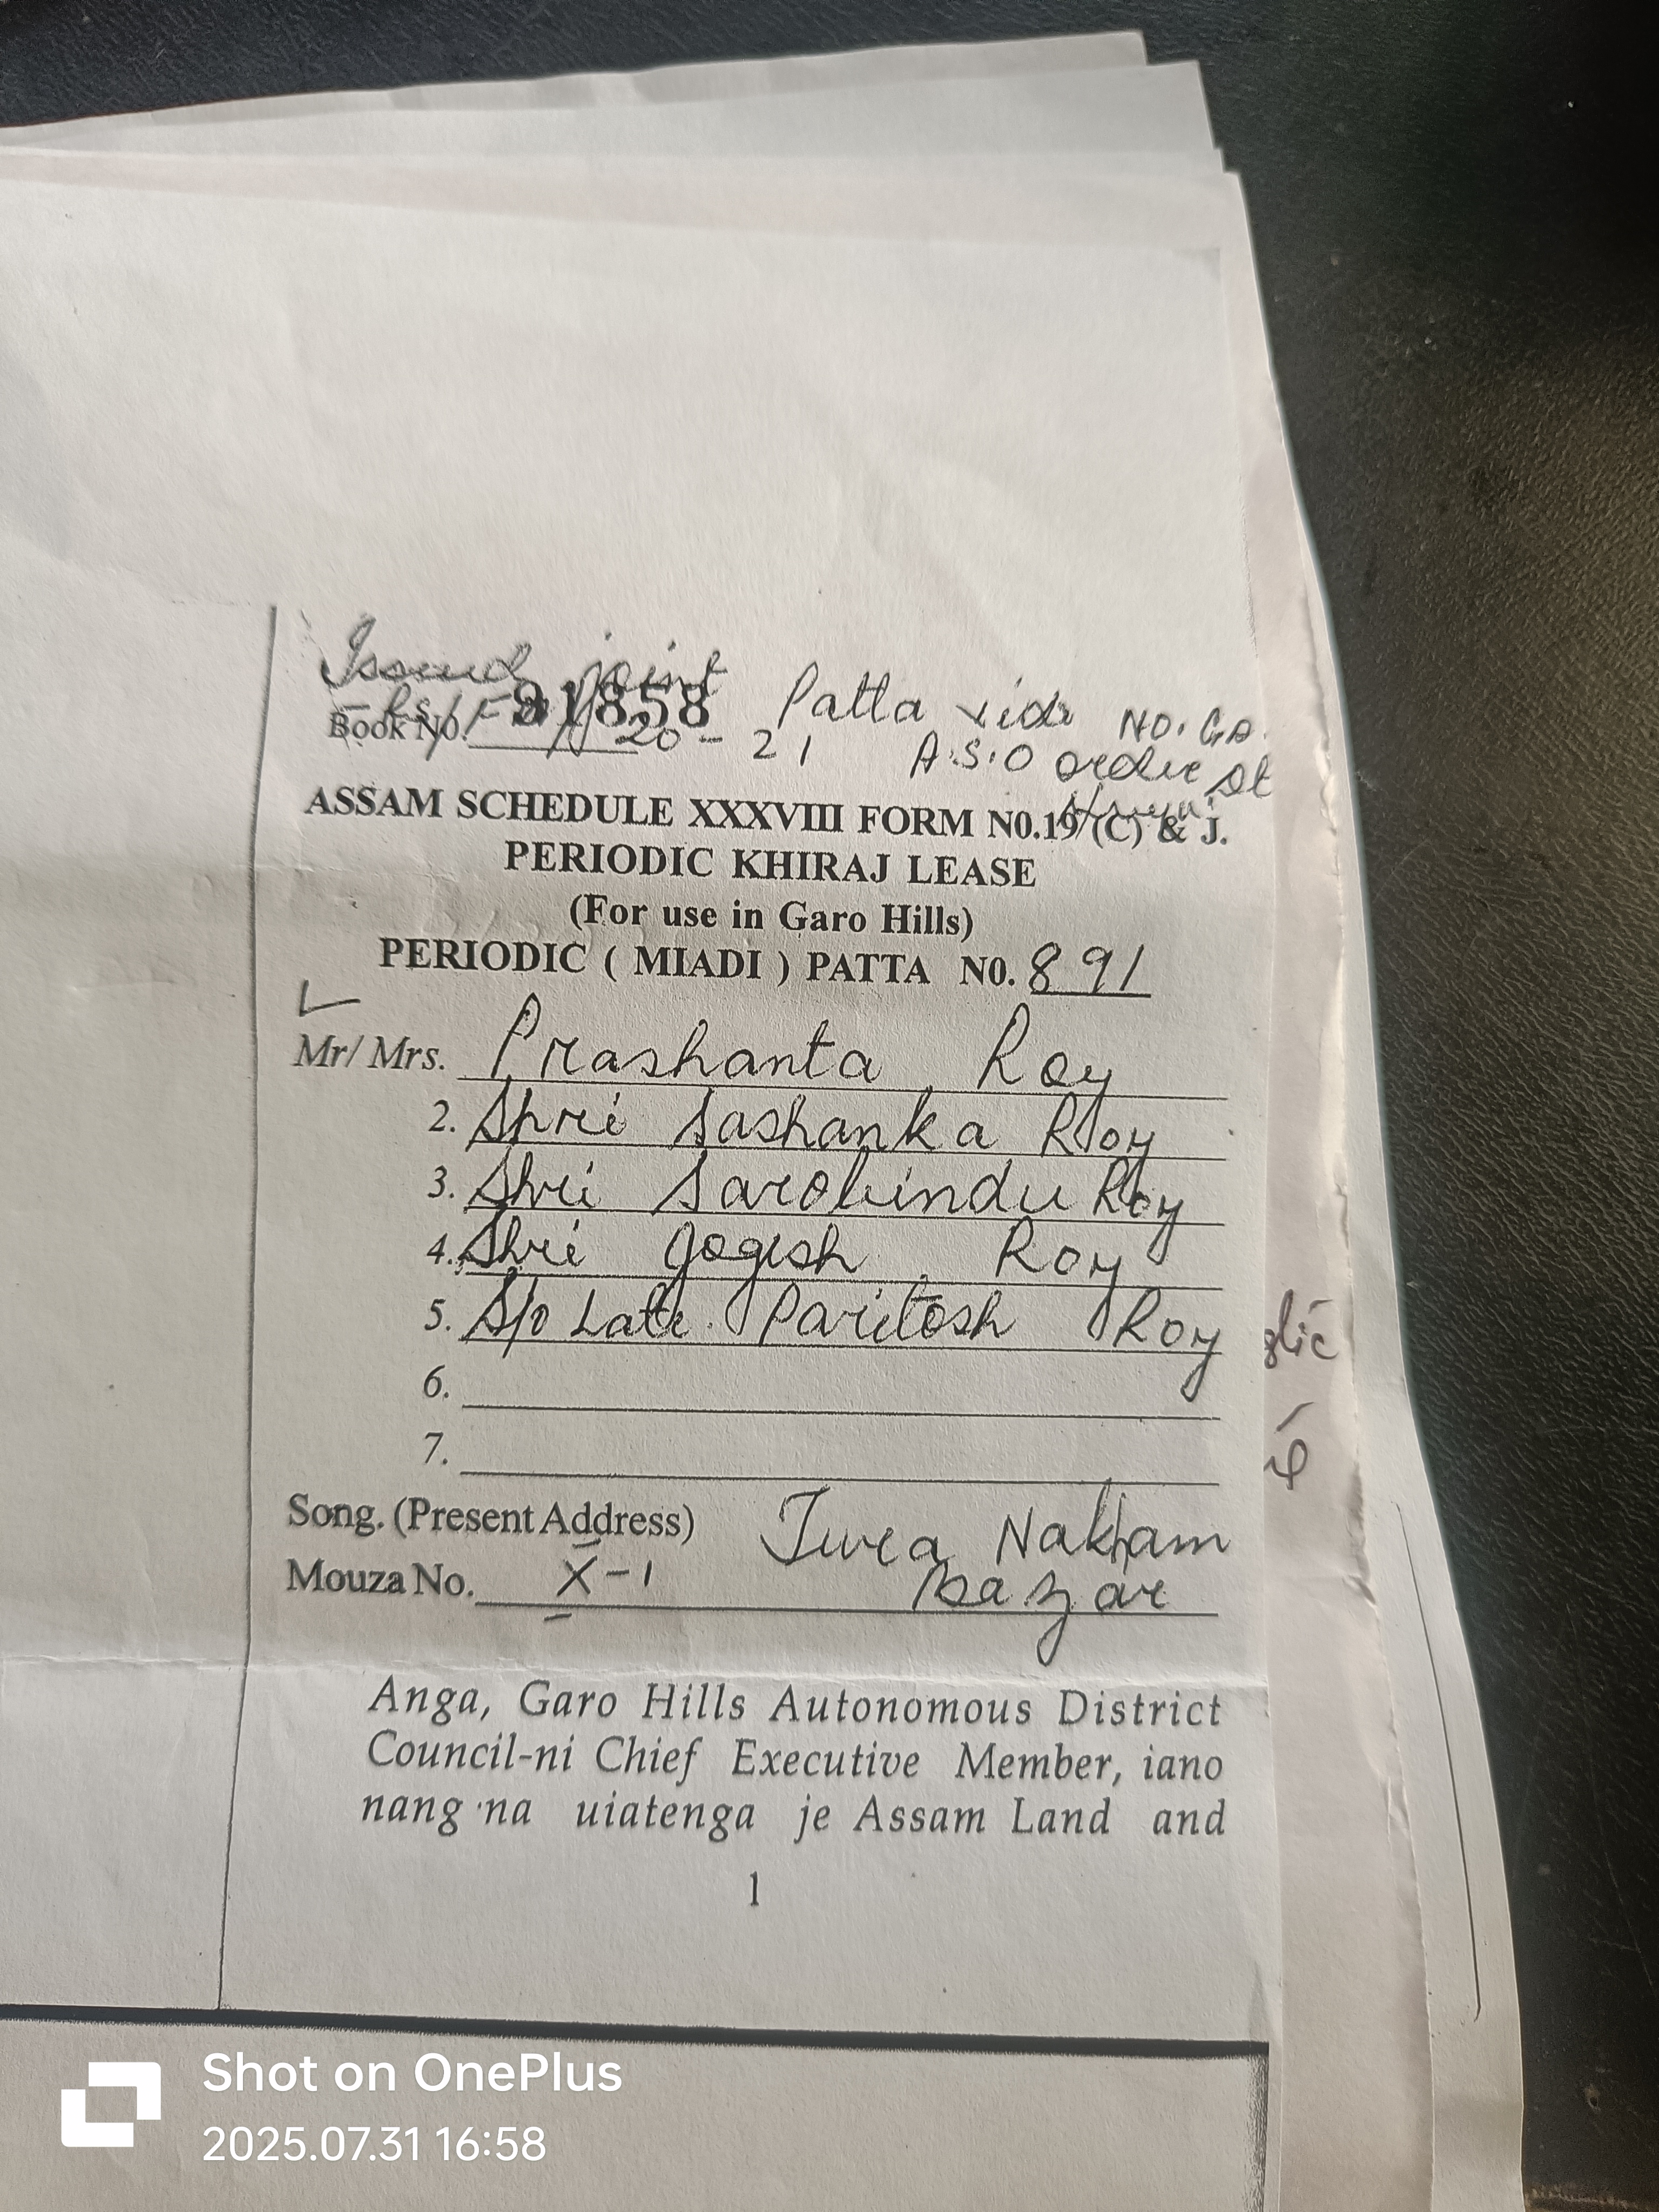 Issued joint Patta vide NO. GA.
Book No. 91858 20-21 A.S.O order dt
ASSAM SCHEDULE XXXVIII FORM N0.19 (C) & J.
PERIODIC KHIRAJ LEASE
(For use in Garo Hills)
PERIODIC ( MIADI ) PATTA N0. 891
Mr/ Mrs. Prashanta Roy
2. Shri Sashanka Roy
3. Shri Sarobindu Roy
4. Shri Jogesh Roy
5. S/o Late Paritosh Roy
6.
7.
Song. (Present Address) Tura Nakham
Mouza No. X-1 Bazar
Anga, Garo Hills Autonomous District
Council-ni Chief Executive Member, iano
nang na uiatenga je Assam Land and
1
Shot on OnePlus
2025.07.31 16:58